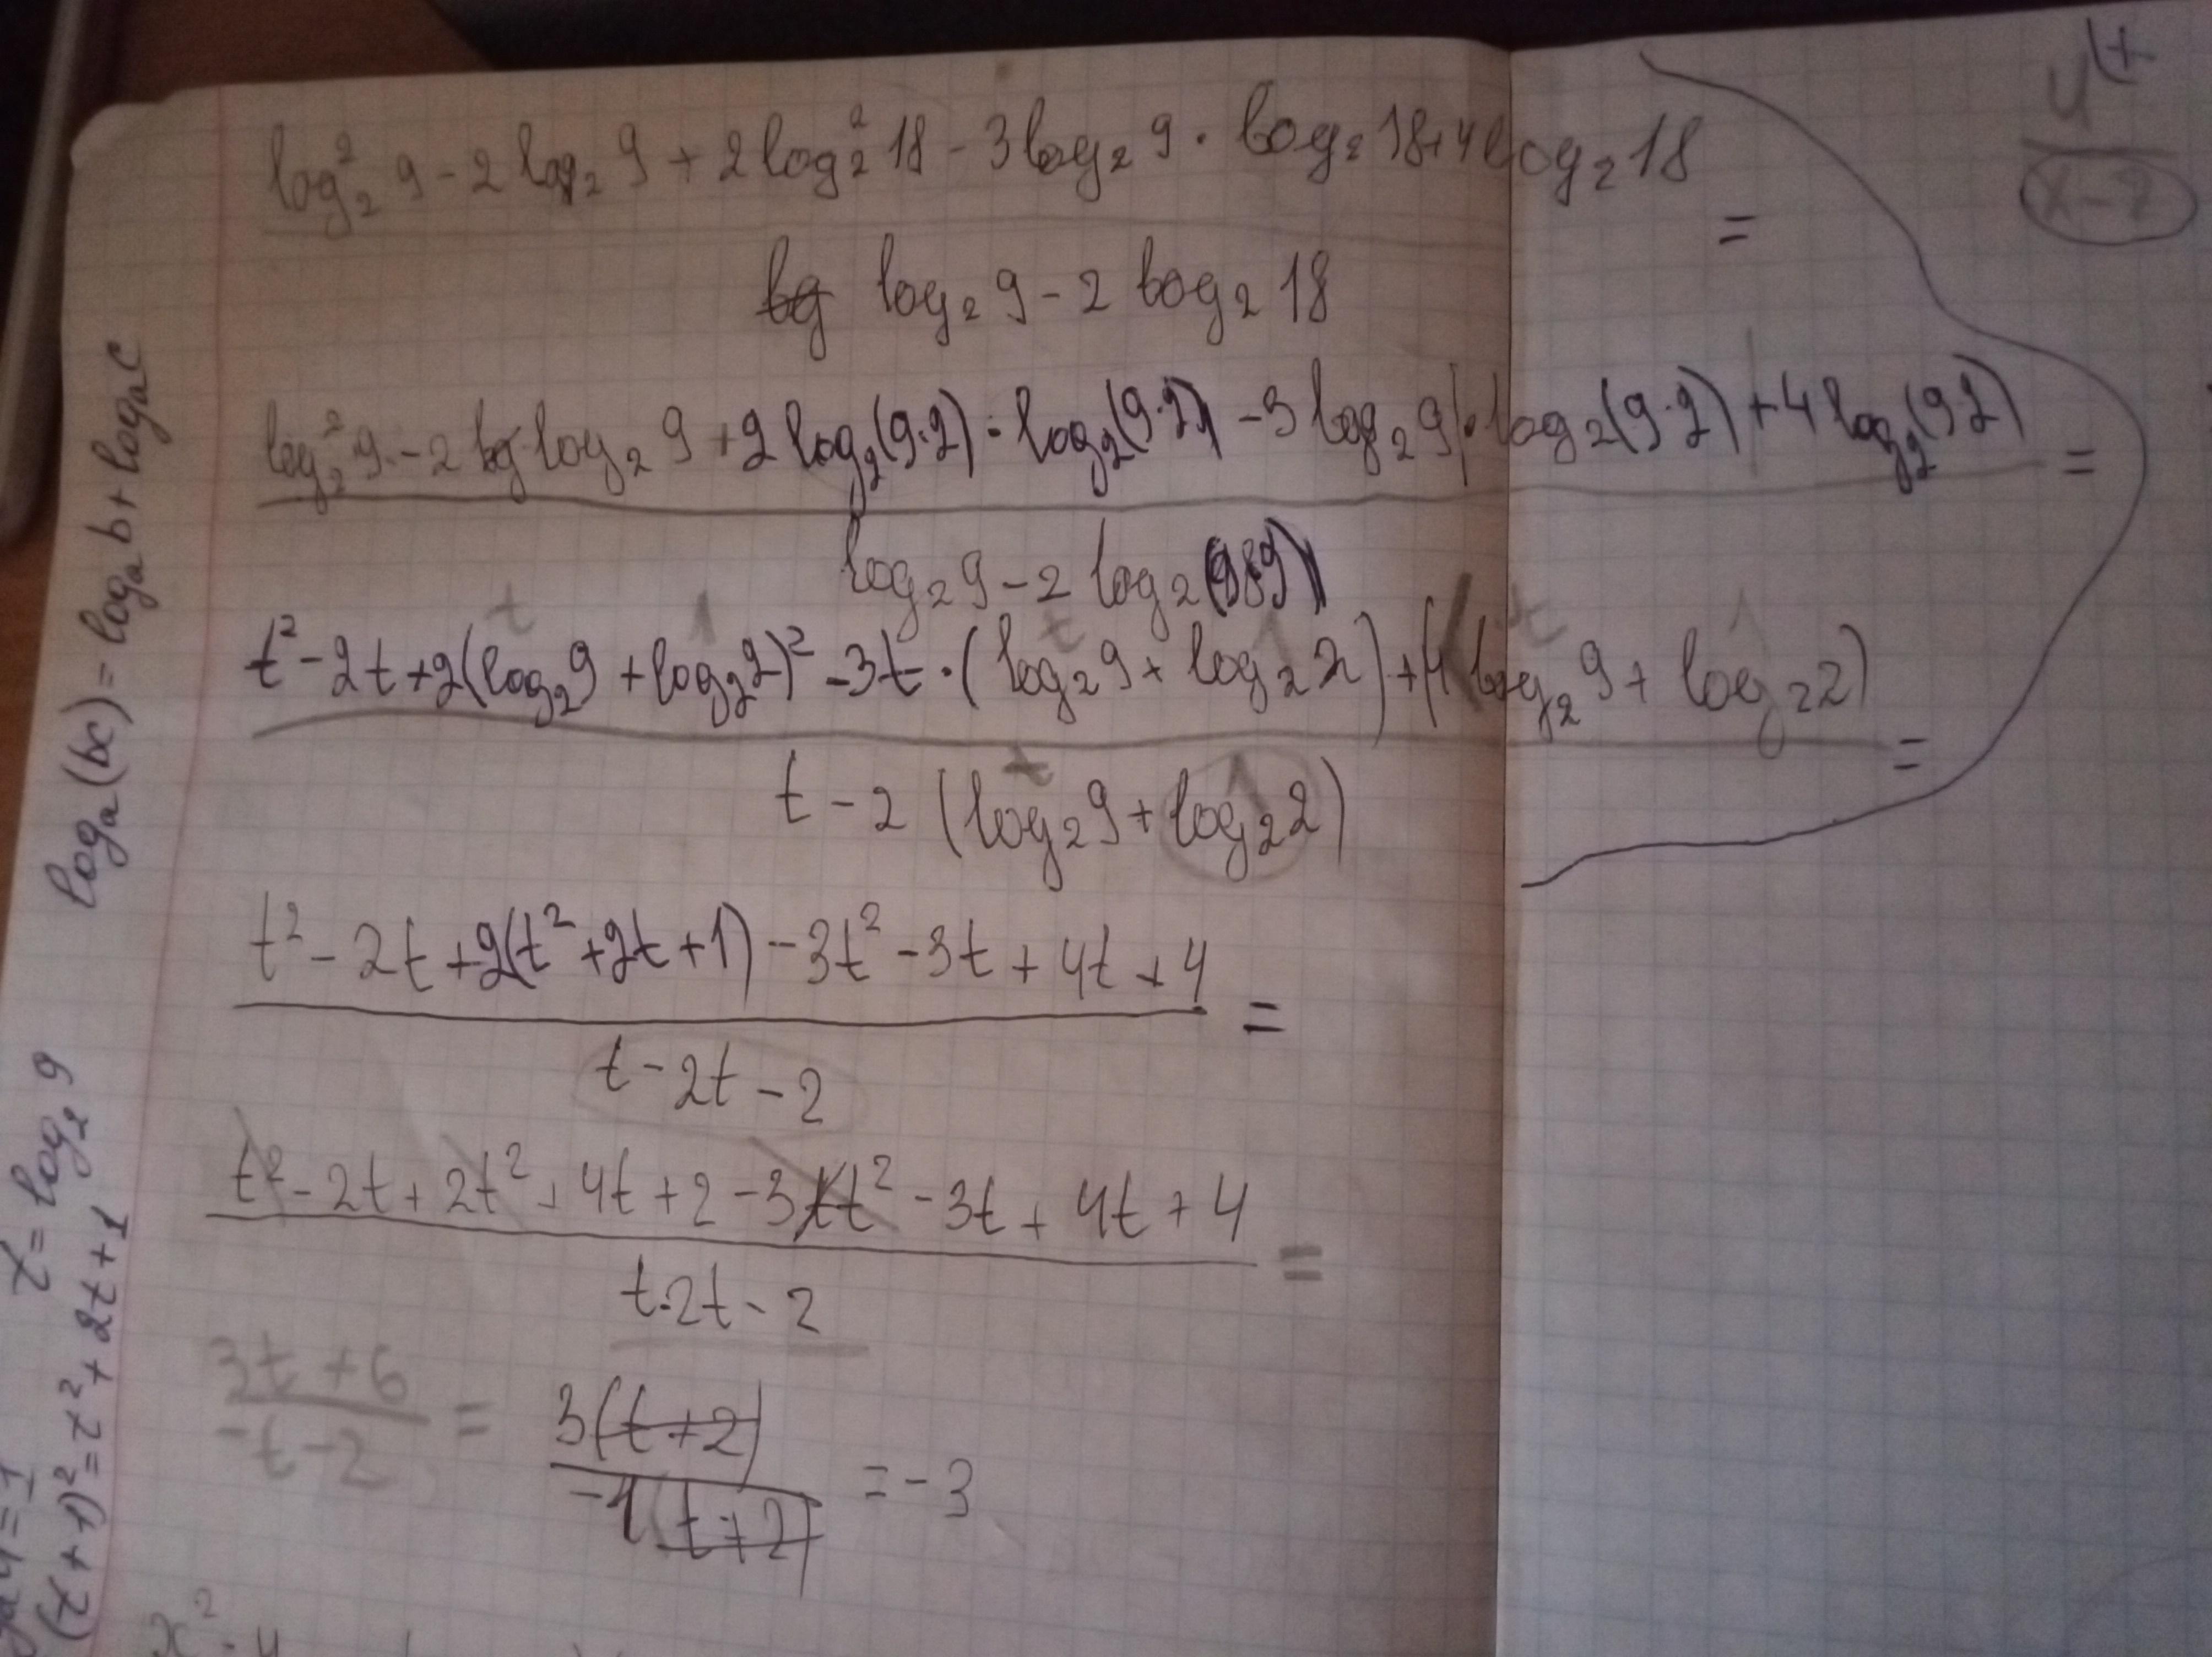 log₂² 9 - 2 log₂ 9 + 2 log₂² 18 - 3 log₂ 9 · log₂ 18 + 4 log₂ 18 =
log₂ 9 - 2 log₂ 18
log₂² 9 - 2 log₂ 9 + 2 log₂(9·2) · log₂(9·2) - 3 log₂ 9 · log₂(9·2) + 4 log₂(9·2) =
log₂ 9 - 2 log₂
t² - 2t + 2(log₂9 + log₂2)² - 3t · (log₂9 + log₂2) + (4 log₂9 + log₂2) =
t - 2 (log₂9 + log₂2)
t² - 2t + 2(t² + 2t + 1) - 3t² - 3t + 4t + 4 =
t - 2t - 2
t² - 2t + 2t² + 4t + 2 - 3t² - 3t + 4t + 4 =
t - 2t - 2
3t + 6 = 3(t + 2) = -3
-t - 2 -1(t + 2)
logₐ(bc) = logₐb + logₐc
t = log₂ 9
(t + 1)² = t² + 2t + 1